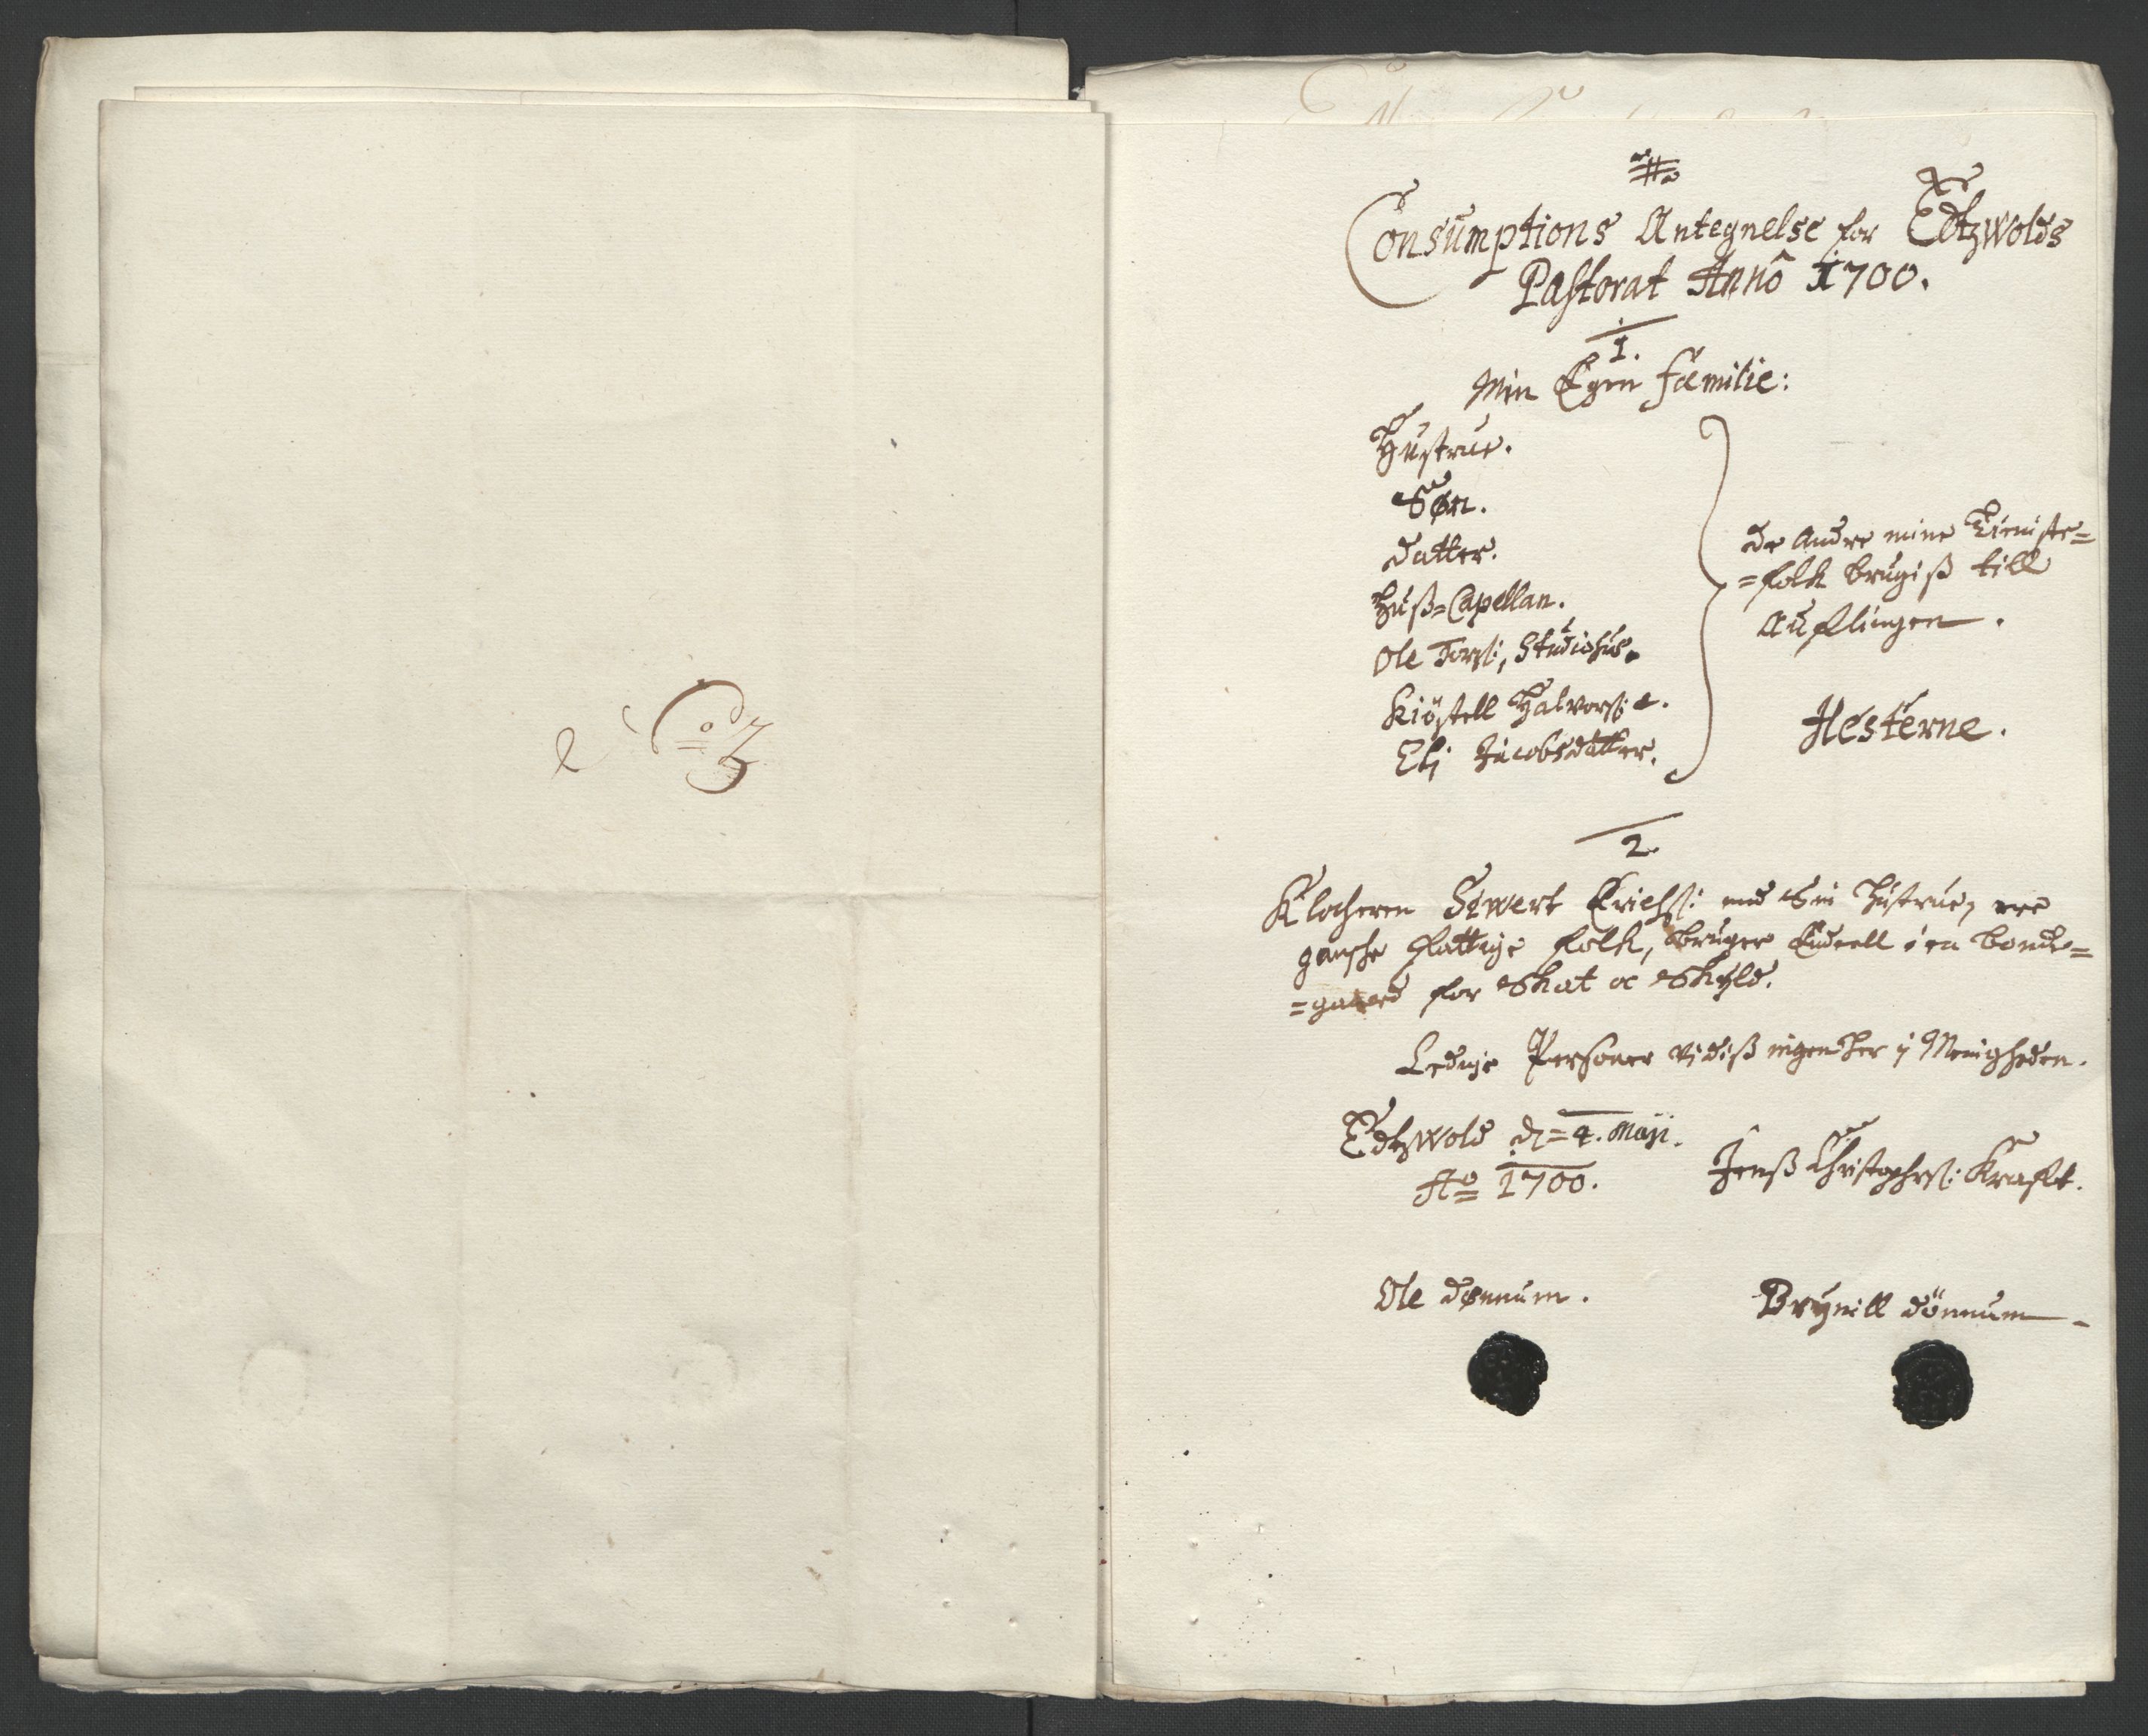 Consumptions Antegnelse for Edtzwolds
Pastorat Annô 1700.
1.
Min Egen familie:
Hustrue.
Søn.
datter.
Huß=Capellan.
Ole Torß:, Studiosus.
Kiøstell Halvorß:
Eli Jacobsdatter.
de Andre mine Tieniste=
=folk brugiß till
Auflingen.
Hesterne.
2.
Klocheren Sewert Erichß: med Sin Hustrue, ere
gansche fattige folk, bruger i en bonde=
=gaard for Skat oc Skyld.
Ledige Personer vidiß ingen her i Menigheden.
Edtzwold d = 4. Maji.
Ao 1700.
Jenß Christophrß: Kraft.
Ole dønnum.
Brynill dönnum